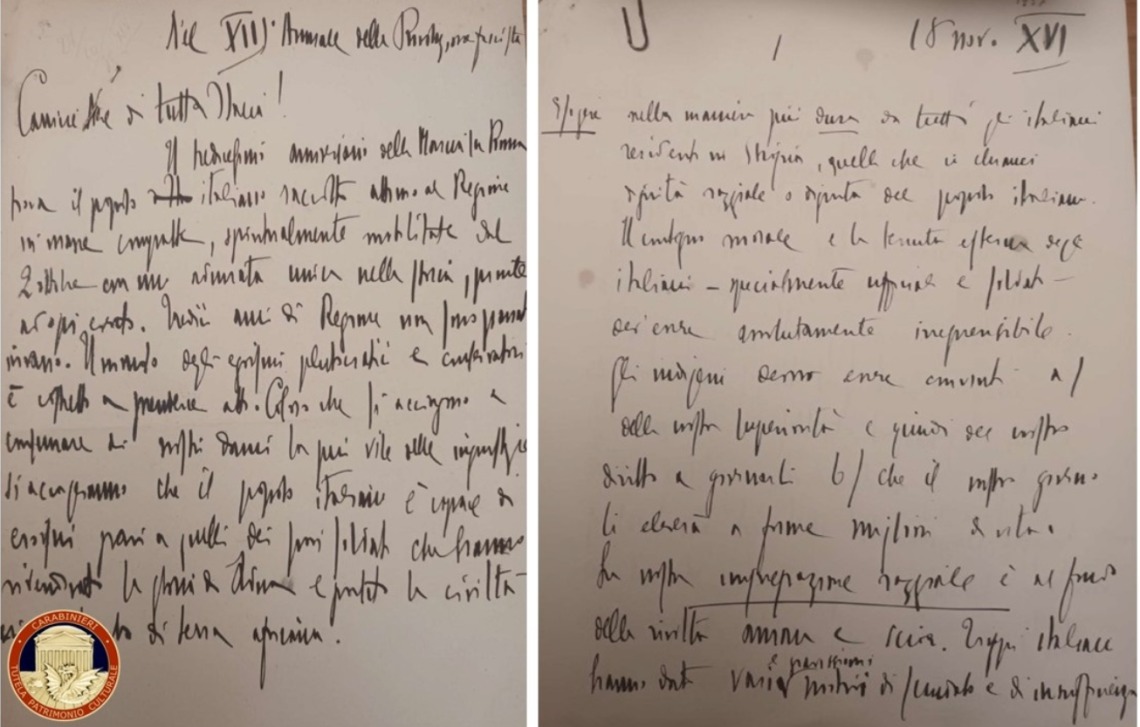 Nel XIII° Annuale della
Camicie Nere di tutta Italia!
Il tredicesimo anniversario della Marcia su Roma
trova il popolo italiano raccolto attorno al Regime
in masse compatte, spiritualmente mobilitate dal
2 ottobre con una adunata unica nella storia, pronte
ad ogni evento. Tredici anni di Regime non sono passati
invano. Il mondo degli egoismi plutocratici e conservatori
è costretto a prendere atto. Coloro che si accingono a
consumare ai nostri danni la più vile delle ingiustizie
si accorgeranno che il popolo italiano è capace di
eroismi pari a quelli dei suoi soldati che hanno
rivendicato la gloria di Adua e portato la civiltà
di terra africana.
18 nov. XVI
1
Esigere nella maniera più dura da tutti gli italiani
residenti in Etiopia, quella che io chiamo
dignità razziale o dignità del popolo italiano.
Il contegno morale e la tenuta esterna degli
italiani – specialmente ufficiali e soldati –
dev'essere assolutamente irreprensibile.
Gli indigeni devono essere convinti a/
della nostra superiorità e quindi del nostro
diritto a governarli b/ che il nostro governo
li eleverà a forme migliori di vita.
La nostra impreparazione razziale è al fondo
della rivolta amara e Scioa. Troppi italiani
hanno dato vari e gravissimi motivi di scandalo e di insufficienza
CARABINIERI
TUTELA PATRIMONIO CULTURALE